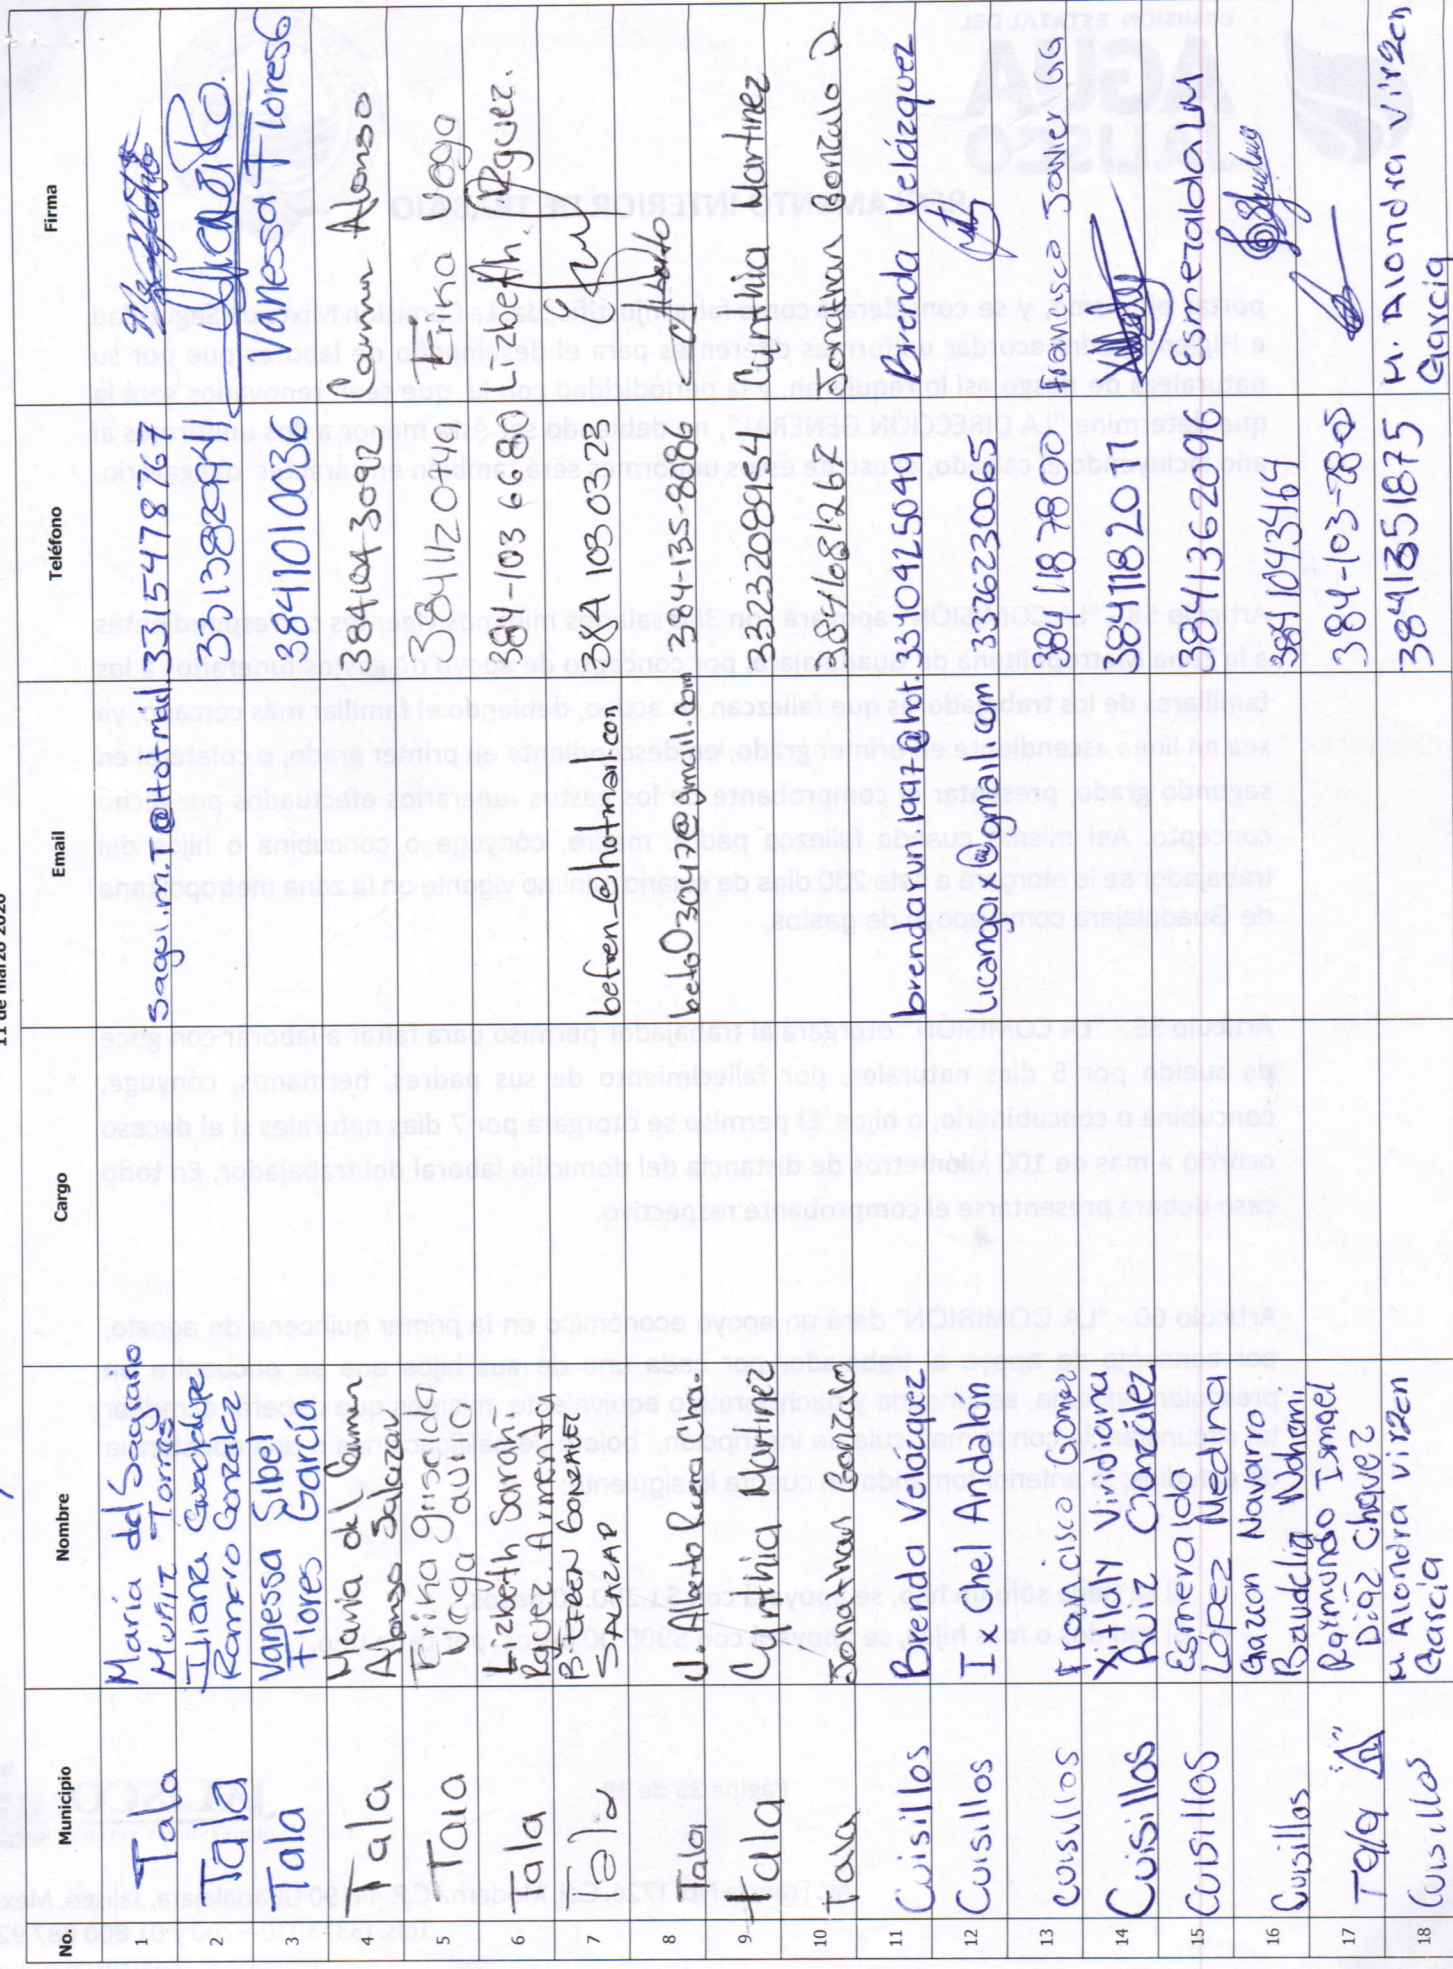 11 de marzo 2020
No. Municipio Nombre Cargo Email Teléfono Firma
1 Tala Maria del Sagrario Muñiz Torres Sagui.m.T@Hotmail 3315478767
2 Tala Iliana Guadalupe Romero Gonzalez 331382
3 Tala Vanessa Sibel Flores Garcia 3841010036 Vanessa Flores G
4 Tala Maria del Carmen Alonso Salazar 384 164 3092 Carmen Alonso
5 Tala Erika Griselda Vega 384112 Erika Vega
6 Tala Lizbeth Sarahi Rguez Armenta 384-103 6680 Lizbeth Rguez.
7 Tala Befren Gonzalez befren_@hotmail.com 384 103 0323
8 Tala J. Alberto beto0-3047@gmail.com 384-135-8086
9 Tala Cinthia Martinez 3322089484 Cinthia Martinez
10 Tala Jonathan Gonzalo 3841081267 Jonathan Gonzalo
11 Cuisillos Brenda Velázquez brendavm1987@hot. 3304125049 Brenda Velázquez
12 Cuisillos I Chel Ardalon Licangoix@gmail.com 3326230065
13 Cuisillos Francisco Gomez 384 118 7800 Francisco Javier GG
14 Cuisillos Xitlaly Viviana Ruiz 3841182071
15 Cuisillos Esmeralda Lopez Medina 3841362096 Esmeralda LM
16 Cuisillos Garzon Navaro Baudelia Nohemi 384 1043546
17 Tala Raimundo Ismael Diaz Chavez 384-103-
18 Cuisillos M. Alondra Virzen Garcia 3841351875 M. Alondra Virzen Garcia